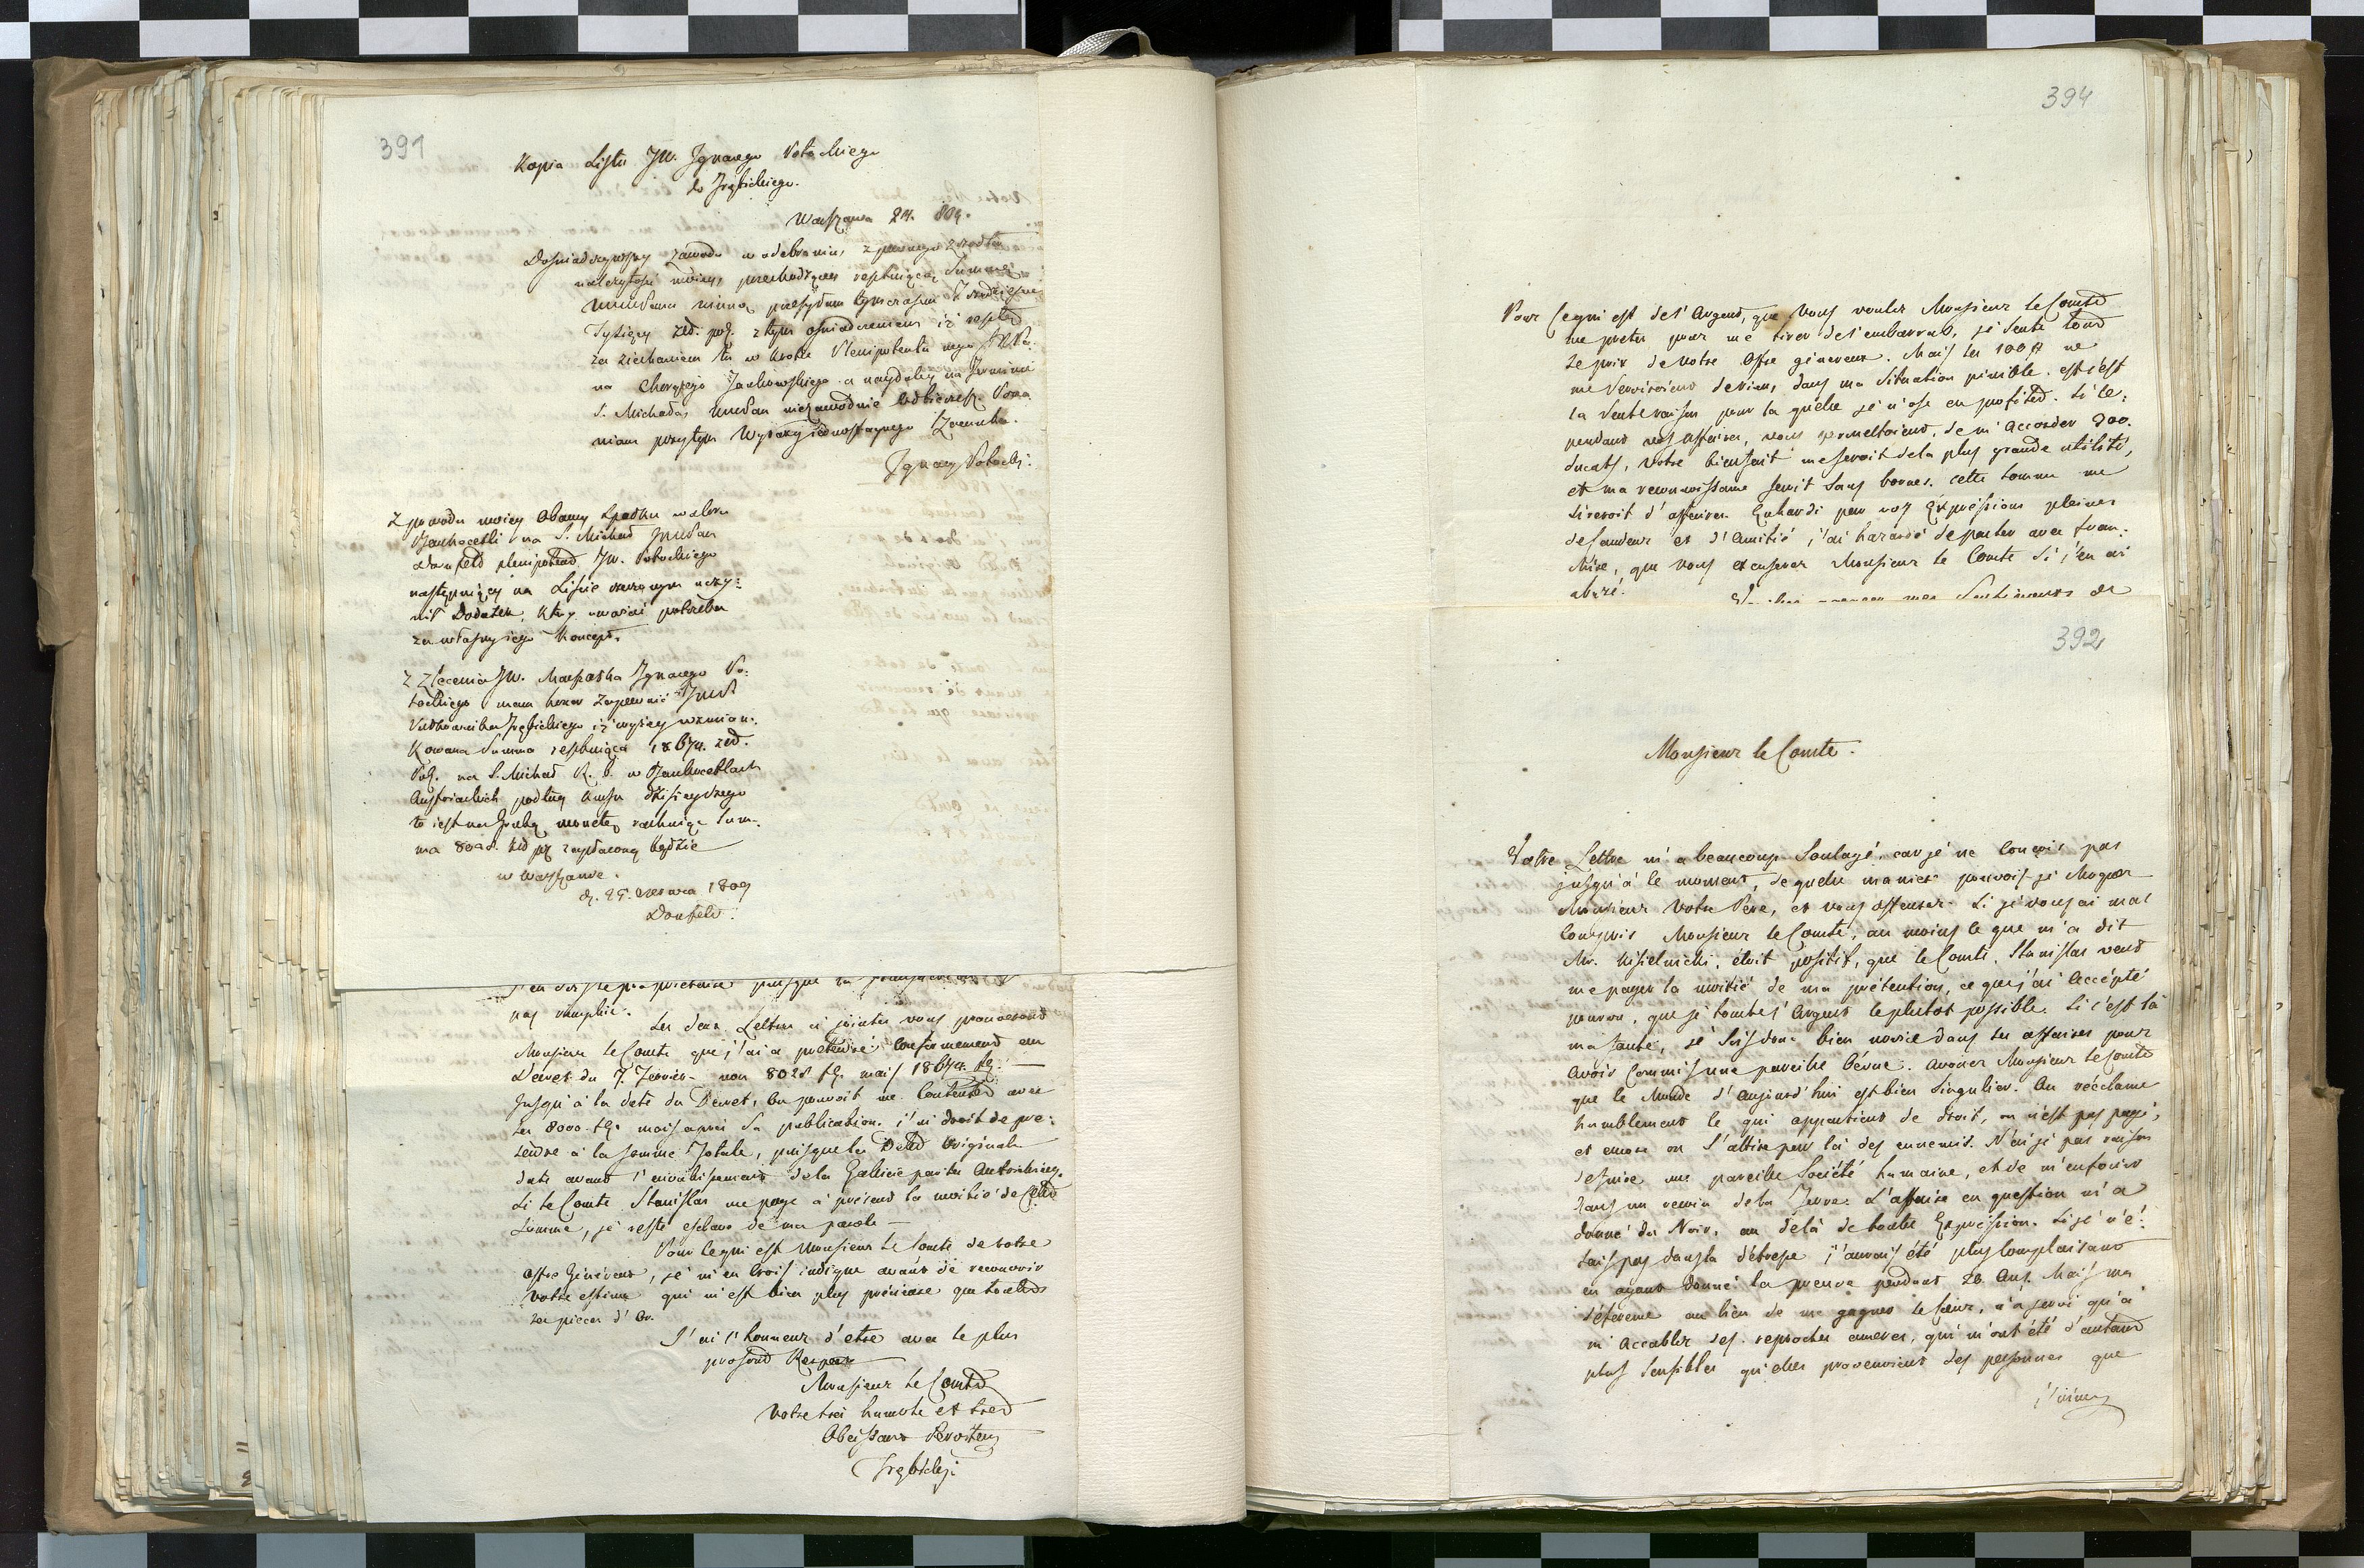 391
Kopia Listu JW. Ignacego Potockiego
do Trębickiego.
Warszawa 24. 809.
Doświadczywszy zawodu w odebraniu z pewnego źrodła
należytości moiey, przechodzącey resztuiącą Summę
WmPanu winną, przesyłam tymczasem
Tysięcy Złł. pol. z tym oświadczeniem iż resztę
za ziechaniem tu w krotce Plenipotenta mego JP.
na Chorążego Jankowskiego a naydaley na Termin
S. Michała, WmPan niezawodnie odbierzesz. Pona
wiam przytym Wyrazy iednostaynego Szacunku.
Ignacy Potocki.
Z powodu moiey Obawy spadku waloru
Bankocetli na S. Michał JmPan
Donfeld plenipotent JW. Potockiego
następuiący na Liście rzeczonym uczy-
nił Dodatek, ktory uważać potrzeba
za własny iego Koncept.
Z Zlecenia JW. Marszałka Ignacego Po-
tockiego mam honor zapewnić
Trębickiego iż wyżey wzmian-
kowana Summa resztuiąca 1867#. złł.
Pol. na S. Michał R. b. w Bankocetlach
Austriackich podług kursu dzisieyszego
to iest na Grubą monetę rachuiąc Sum-
ma 8028. złł pz zapłaconą będzie
w Warszawie.
d. 25. Czerwca 1809
Donfeld.
pas remplie.
Les deux Lettres ci jointes vous prouveront
Monsieur le Comte que j'ai a pretendre conformement au
Decret du 7. Fevrier non 8028 fl. mais 1867#. fl. —
Jusqu'à la date du Decret, on pouvoit me Contenter avec
les 8000 fl. mais apres Sa publication, j'ai droit de pre-
tendre à la somme Totale, puisque la Dette Originale
date avant l'envahissement de la Gallicie par les Autrichiens.
Si le Comte Stanislas me paye à présent la moitié de Cette
Somme, je reste esclave de ma parole —
Pour ce qui est Monsieur le Comte de votre
offre Généreux, je m'en crois indigne avant de recouvrir
votre estime qui m'est bien plus précieuse que toutes
les pieces d'Or.
J'ai l'honneur d'etre avec le plus
profond Respect
Monsieur le Comte
Votre trés humble et tres
Obeissant Serviteur
Trębicki
394
Pour Ce qui est de l'Argent, que Vous voulez Monsieur le Comte
me preter pour me tirer de l'embarras, je Sens tout
le prix de votre Offre génereux. Mais les 100 # ne
me Serviroient de rien, dans ma Situation pénible. est c'est
la Seule raison pour la quelle je n'ose en profiter. Si Ce-
pendant vos affaires, vous permettoient, de m'Accorder 300.
ducats, Votre bienfait me seroit de la plus grande utilité,
et ma reconnoissance seroit Sans bornes. Cette Somme me
tireroit d'affaires. Enhardi par vos Expressions pleines
de Candeur et d'Amitié, j'ai hazardé de parler avec fran-
chise, que vous excuserez Monsieur le Comte Si j'en ai
abusé.
mes Sentiments de
392
Monsieur le Comte.
Votre Lettre m'a beaucoup Soulagé, car je ne Conçois pas
jusqu'à ce moment, de quelle maniere pouvois-je Choquer
Monsieur Votre Pere, et vous offenser. Si je vous ai mal
Compris Monsieur le Comte, au moins ce que m'a dit
Mr. Kisielnicki, étoit positif, que le Comte Stanislas veut
me payer la moitié de ma prétention, ce que j'ai Accépté
pourvu, que je touche l'Argent le plutot possible. Si c'est là
ma faute, je Suis donc bien novice dans les affaires pour
avoir Commis une pareille bévue. Avouez Monsieur le Comte
que le Monde d'Aujourd'hui est bien Singulier. On réclame
humblement ce qui appartient de droit, on n'est pas payé,
et encore on S'attire par là des ennemis. N'ai je pas raison
de fuire une pareille Société humaine, et de m'enfouir
dans un recoin de la Terre. L'affaire en question m'a
donné du Noir, au delà de toute Expression. Si je n'é-
tais pas dans la détresse j'aurois été plus complaisant
en ayant donné la preuve pendant 20 Ans. Mais ma
déference au lieu de me gagner le Coeur, n'a servi qu'à
m'Accabler des reproches ameres, qui m'ont été d'autant
plus Sensibles qu'elles provenoient des personnes que
j'aime